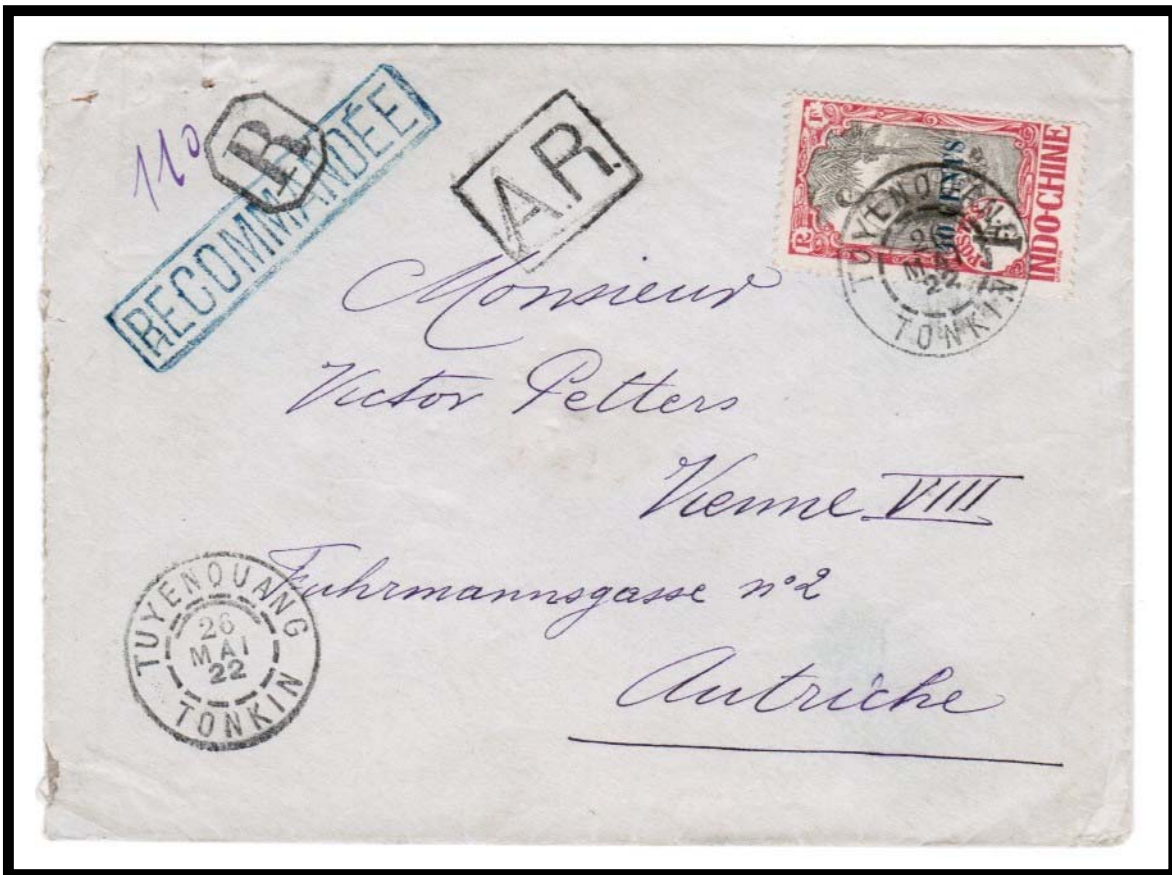 110
R
RECOMMANDÉE
A.R.
R F
40 CENTS
POSTES
1
INDO-CHINE
TUYENQUANG
26
MAI
22
TONKIN
Monsieur
Victor Petters
Vienne VIII
Fuhrmannsgasse n° 2
Autriche
TUYENQUANG
26
MAI
22
TONKIN